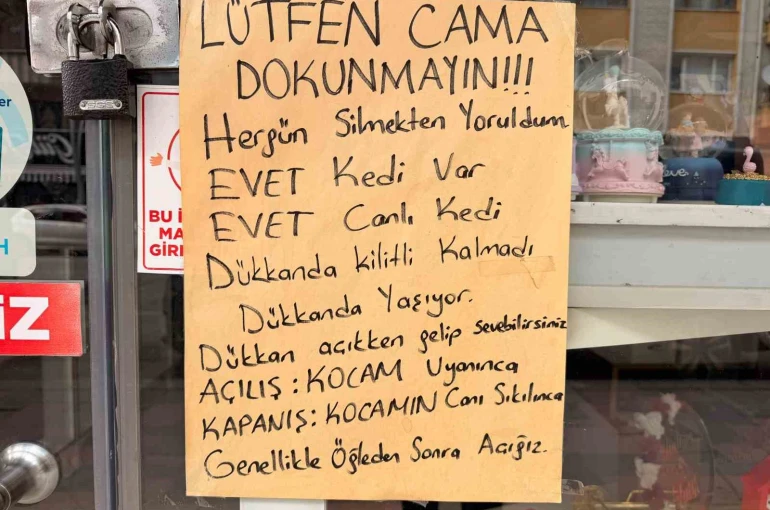 LÜTFEN CAMA
DOKUNMAYIN!!!
Hergün Silmekten Yoruldum
EVET Kedi Var
EVET Canlı Kedi
Dükkanda kilitli Kalmadı
Dükkanda Yaşıyor.
Dükkan açıkken gelip sevebilirsiniz
AÇILIŞ: KOCAM Uyanınca
KAPANIŞ: KOCAMIN Canı Sıkılınca
Genellikle Öğleden Sonra Açığız.
BU İ
MA
GİRİ
er
H
İZ